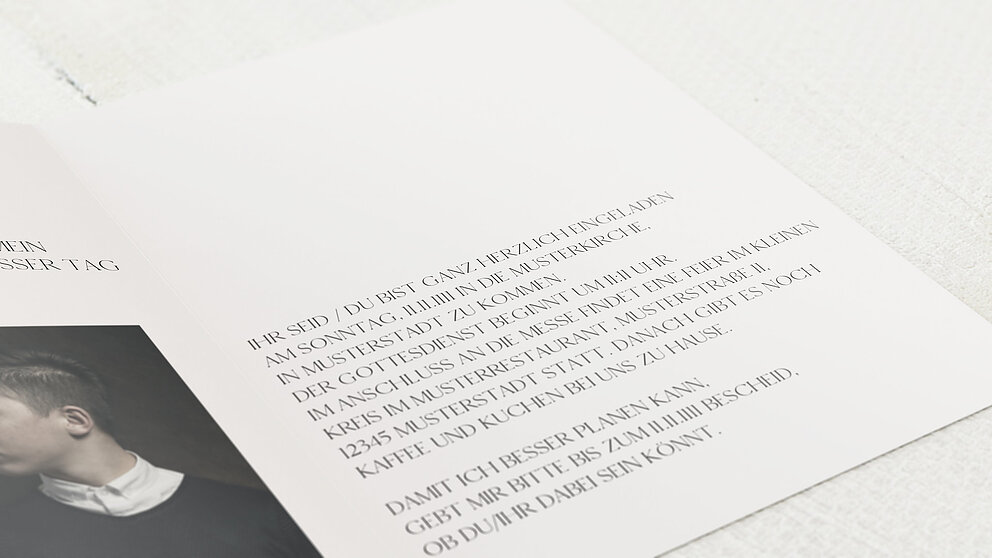 MEIN
SSER TAG
IHR SEID / DU BIST GANZ HERZLICH EINGELADEN
AM SONNTAG, 11.11.1111 IN DIE MUSTERKIRCHE,
IN MUSTERSTADT ZU KOMMEN.
DER GOTTESDIENST BEGINNT UM 11:11 UHR.
IM ANSCHLUSS AN DIE MESSE FINDET EINE FEIER IM KLEINEN
KREIS IM MUSTERRESTAURANT, MUSTERSTRAßE 11,
12345 MUSTERSTADT STATT. DANACH GIBT ES NOCH
KAFFEE UND KUCHEN BEI UNS ZU HAUSE..
DAMIT ICH BESSER PLANEN KANN,
GEBT MIR BITTE BIS ZUM 11.11.1111 BESCHEID,
OB DU/IHR DABEI SEIN KÖNNT.